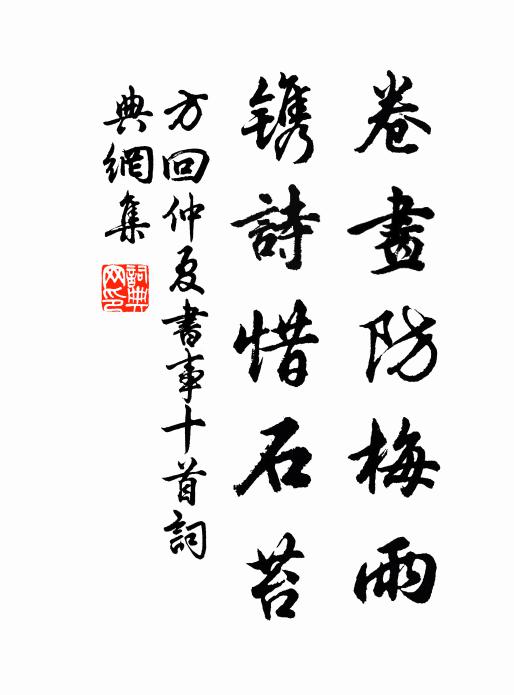 卷畫防梅雨
鐫詩惜石苔
方回仲夏書事十首詞
典網集
詞典網印